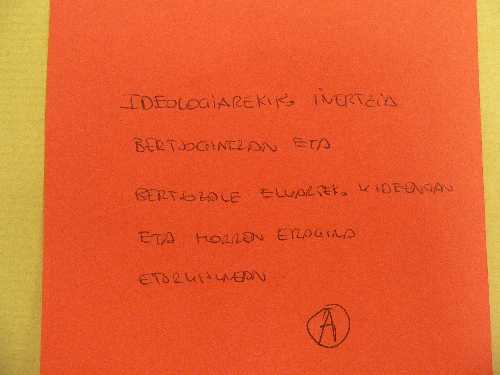 IDEOLOGIAREKIKO INERTZIA
ETA
BERTSOZALE ELKARTEKO KIDEENGAN
ETA HORREN ERAGINA
A